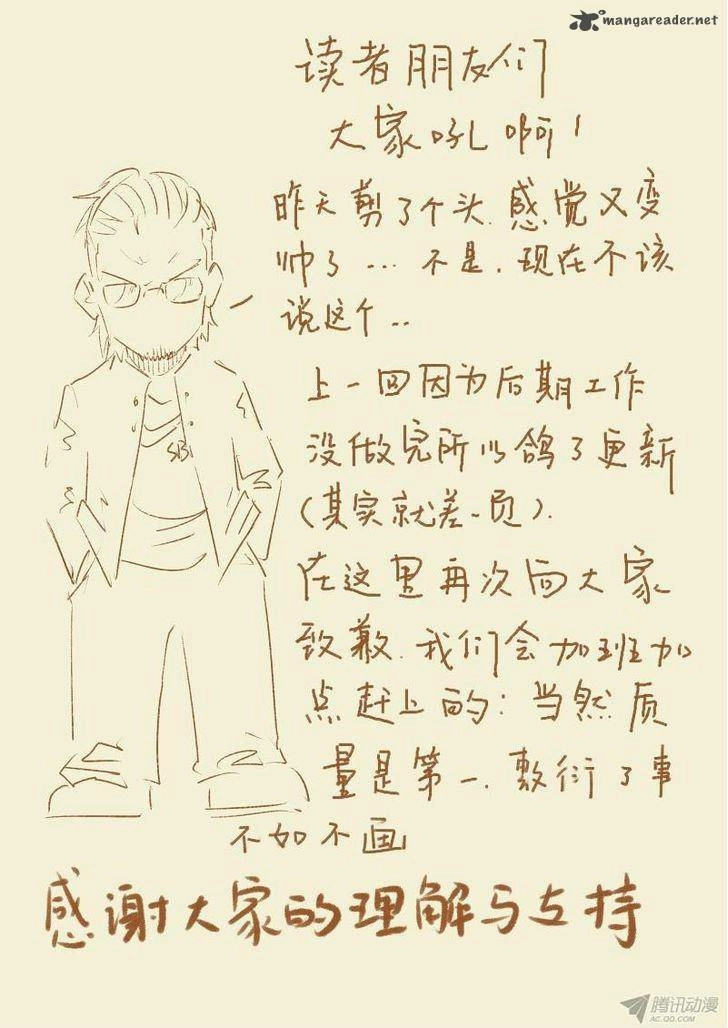 mangareader.net
读者朋友们
大家吼啊!
昨天剪了个头,感觉又变
帅了...不是,现在不该
说这个..
上一回因为后期工作
没做完所以鸽了更新
(其实就差一页).
在这里再次向大家
致歉.我们会加班加
点赶上的:当然质
量是第一.敷衍了事
不如不画
感谢大家的理解与支持
SB
腾讯动漫
AC.QQ.COM